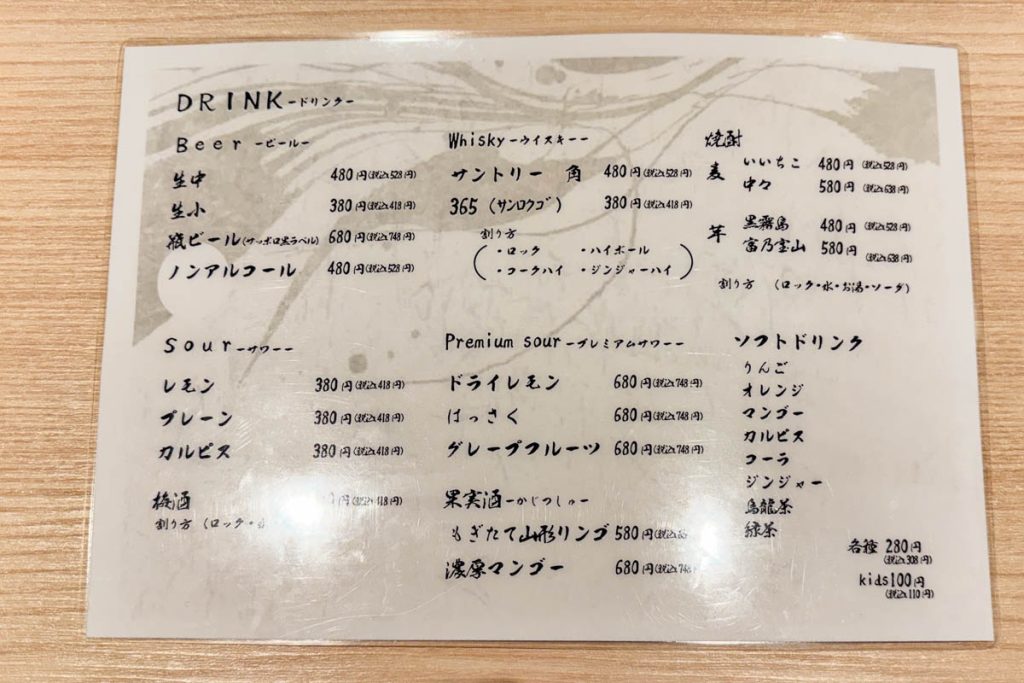 DRINK-ドリンク-
Beer -ビール-
生中 480円(税込528円)
生小 380円(税込418円)
瓶ビール(サッポロ黒ラベル) 680円(税込748円)
ノンアルコール 480円(税込528円)
Whisky-ウイスキー-
サントリー 角 480円(税込528円)
365 (サンロクゴ) 380円(税込418円)
割り方
・ロック ・ハイボール
・コークハイ ・ジンジャーハイ
焼酎
麦 いいちこ 480円(税込528円)
中々 580円(税込638円)
芋 黒霧島 480円(税込528円)
富乃宝山 580円(税込638円)
割り方 (ロック・水・お湯・ソーダ)
Sour-サワー-
レモン 380円(税込418円)
プレーン 380円(税込418円)
カルピス 380円(税込418円)
梅酒 円(税込418円)
割り方 (ロック・
Premium sour-プレミアムサワー-
ドライレモン 680円(税込748円)
はっさく 680円(税込748円)
グレープフルーツ 680円(税込748円)
果実酒-かじつしゅ-
もぎたて山形リンゴ 580円(税込
濃厚マンゴー 680円(税込748
ソフトドリンク
りんご
オレンジ
マンゴー
カルピス
コーラ
ジンジャー
烏龍茶
緑茶
各種 280円
(税込308円)
kids100円
(税込110円)